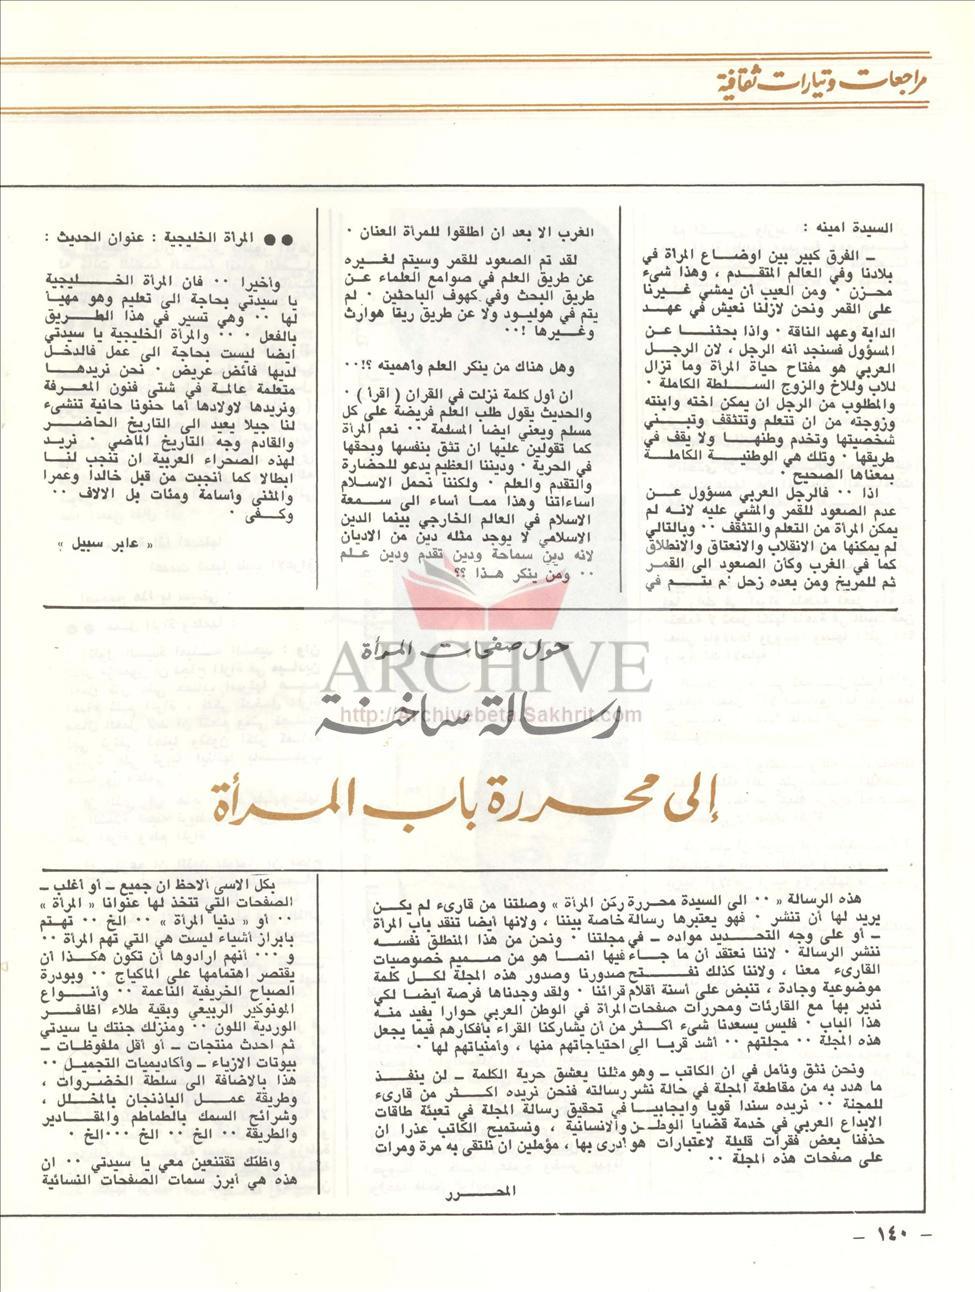 مراجعات وتيارات ثقافية
السيدة امينه :
ـ الفرق كبير بين اوضاع المرأة في
بلادنا وفي العالم المتقدم ، وهذا شىء
محزن ٠ ومن العيب أن يمشي غيرنا
على القمر ونحن لازلنا نعيش في عهد
الدابة وعهد الناقة ٠ واذا بحثنا عن
المسؤول فسنجد أنه الرجل ، لان الرجل
العربي هو مفتاح حياة المرأة وما تزال
للاب وللاخ والزوج السلطة الكاملة ٠
والمطلوب من الرجل ان يمكن اخته وابنته
وزوجته من ان تتعلم وتتثقف وتبني
شخصيتها وتخدم وطنها ولا يقف في
طريقها ٠ وتلك هي الوطنية الكاملة
بمعناها الصحيح ٠
اذا ٠٠ فالرجل العربي مسؤول عن
عدم الصعود للقمر والمشي عليه لانه لم
يمكن المرأة من التعلم والتثقف ٠٠ وبالتالي
لم يمكنها من الانقلاب والانعتاق والانطلاق
كما في الغرب وكان الصعود الى القمر
ثم للمريخ ومن بعده زحل لم يتم في
الغرب الا بعد ان اطلقوا للمرأة العنان ٠
لقد تم الصعود للقمر وسيتم لغيره
عن طريق العلم في صوامع العلماء عن
طريق البحث وفي كهوف الباحثين ٠ لم
يتم في هوليود ولا عن طريق ريتا هوارث
وغيرها !٠٠
وهل هناك من ينكر العلم وأهميته ؟!٠٠
ان أول كلمة نزلت في القران ( اقرأ ) ٠
والحديث يقول طلب العلم فريضة على كل
مسلم ويعني ايضا المسلمة ٠٠ نعم المرأة
كما تقولين عليها ان تثق بنفسها وبحقها
في الحرية ٠ وديننا العظيم يدعو للحضارة
والتقدم والعلم ٠ ولكننا نحمل الاسلام
اساءاتنا وهذا مما أساء الى سمعة
الاسلام في العالم الخارجي بينما الدين
الإسلامي لا يوجد مثله دين من الاديان
لانه دين سماحة ودين تقدم ودين علم
٠٠ ومن ينكر هذا ؟؟
●● المرأة الخليجية : عنوان الحديث :
وأخيرا ٠٠ فان المرأة الخليجية
يا سيدتي بحاجة الى تعليم وهو مهيأ
لها ٠٠ وهي تسير في هذا الطريق
بالفعل ٠ ٠٠ والمرأة الخليجية يا سيدتي
أيضا ليست بحاجة الى عمل فالدخل
لديها فائض عريض ٠ نحن نريدها
متعلمة عالمة في شتى فنون المعرفة
ونريدها لاولادها أما حنونا حانية تنشىء
لنا جيلا يعيد الى التاريخ الحاضر
والقادم وجه التاريخ الماضي ٠ نريد
لهذه الصحراء العربية ان تنجب لنا
ابطالا كما أنجبت من قبل خالدا وعمرا
والمثنى وأسامة ومئات بل الالاف ٠٠
وكفى ٠
« عابر سبيل »
ARCHIVE
http://Archivebeta.Sakhrit.com
حول صفحات المرأة
رسالة ساخنة
إلى محررة باب المرأة
هذه الرسالة « ٠٠ الى السيدة محررة ركن المرأة » وصلتنا من قارىء لم يكن
يريد لها أن تنشر ٠ فهو يعتبرها رسالة خاصة بيننا ، ولانها أيضا تنقد باب المرأة
ـ أو على وجه التحديد مواده ـ في مجلتنا ٠ ونحن من هذا المنطلق نفسه
ننشر الرسالة ٠ لاننا نعتقد أن ما جاء فيها انما هو من صميم خصوصيات
القارىء معنا ، ولاننا كذلك نفتح صدورنا وصدور هذه المجلة لكل كلمة
موضوعية وجادة ، تنبض على أسنة أقلام قرائنا ٠ ولقد وجدناها فرصة أيضا لكي
ندير بها مع القارئات ومحررات صفحات المرأة في الوطن العربي حوارا يفيد منه
هذا الباب ٠ فليس يسعدنا شىء أكثر من أن يشاركنا القراء بأفكارهم فيما يجعل
هذه المجلة ٠٠ مجلتهم ٠٠ أشد قربا الى احتياجاتهم منها ، وأمنياتهم لها ٠
ونحن نثق ونأمل في ان الكاتب ـ وهو مثلنا يعشق حرية الكلمة ـ لن ينفذ
ما هدد به من مقاطعة المجلة في حالة نشر رسالته فنحن نريده اكثر من قارىء
للمجلة ٠٠ نريده سندا قويا وايجابيا في تحقيق رسالة المجلة في تعبئة طاقات
الابداع العربي في خدمة قضايا الوطن والانسانية ، ونستميح الكاتب عذرا ان
حذفنا بعض فقرات قليلة لاعتبارات هو ادرى بها ، مؤملين ان نلتقى به مرة ومرات
على صفحات هذه المجلة ٠٠
المحرر
بكل الاسى ألاحظ ان جميع ـ أو أغلب ـ
الصفحات التي تتخذ لها عنوانا « المرأة »
٠٠ أو « دنيا المرأة » ٠٠ الخ ٠٠ تهتم
بابراز أشياء ليست هي التي تهم المرأة ٠٠
و ٠٠٠ أنهم ارادوها أن تكون هكذا أن
يقتصر اهتمامها على الماكياج ٠٠ وبودرة
الصباح الخريفية الناعمة ٠٠ وأنواع
المونوكير الربيعي وبقية طلاء اظافر
الوردية اللون ٠٠ ومنزلك جنتك يا سيدتي
ثم احدث منتجات ـ أو أقل ملفوظات ـ
بيوتات الازياء ـ وأكاديميات التجميل ٠٠
هذا بالاضافة الى سلطة الخضروات ،
وطريقة عمل الباذنجان بالمخلل ،
وشرائح السمك بالطماطم والمقادير
والطريقة ٠٠ الخ ٠٠ الخ ٠٠٠الخ ٠
واظنك تقتنعين معي يا سيدتي ٠٠ ان
هذه هي أبرز سمات الصفحات النسائية
ـ ١٤٠ ـ